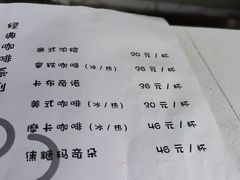 经典咖啡系列
意式浓缩 30 元 / 杯
拿铁咖啡 (冰 / 热) 36 元 / 杯
卡布奇诺 36 元 / 杯
美式咖啡 (冰 / 热) 30 元 / 杯
摩卡咖啡 (冰 / 热) 46 元 / 杯
焦糖玛奇朵 46 元 / 杯